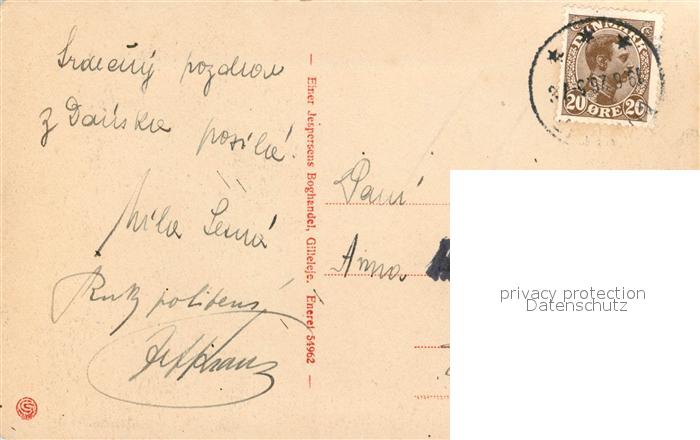 Srdečný pozdrav
z Dánska posílá
Míla Černá
Ruky políbení
Einer Jespersens Boghandel, Gilleleje. Eneret 54962
Paní
Anna
DANMARK
20 ØRE 20
privacy protection
Datenschutz